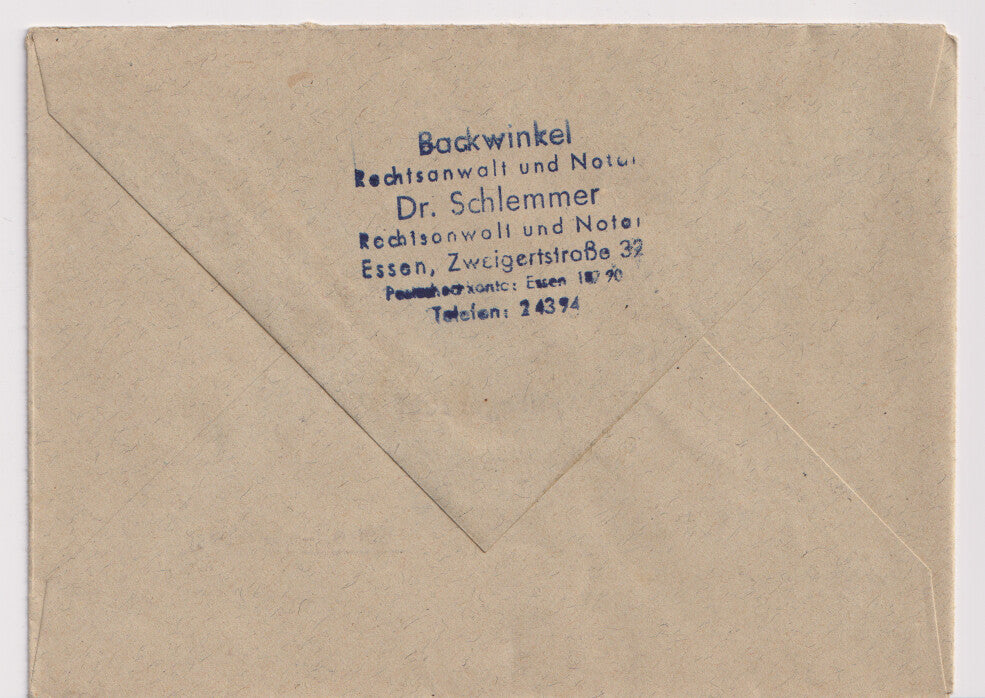 Backwinkel
Rechtsanwalt und Notar
Dr. Schlemmer
Rechtsanwalt und Notar
Essen, Zweigertstraße 32
Postscheckkonto: Essen
Telefon: 24394